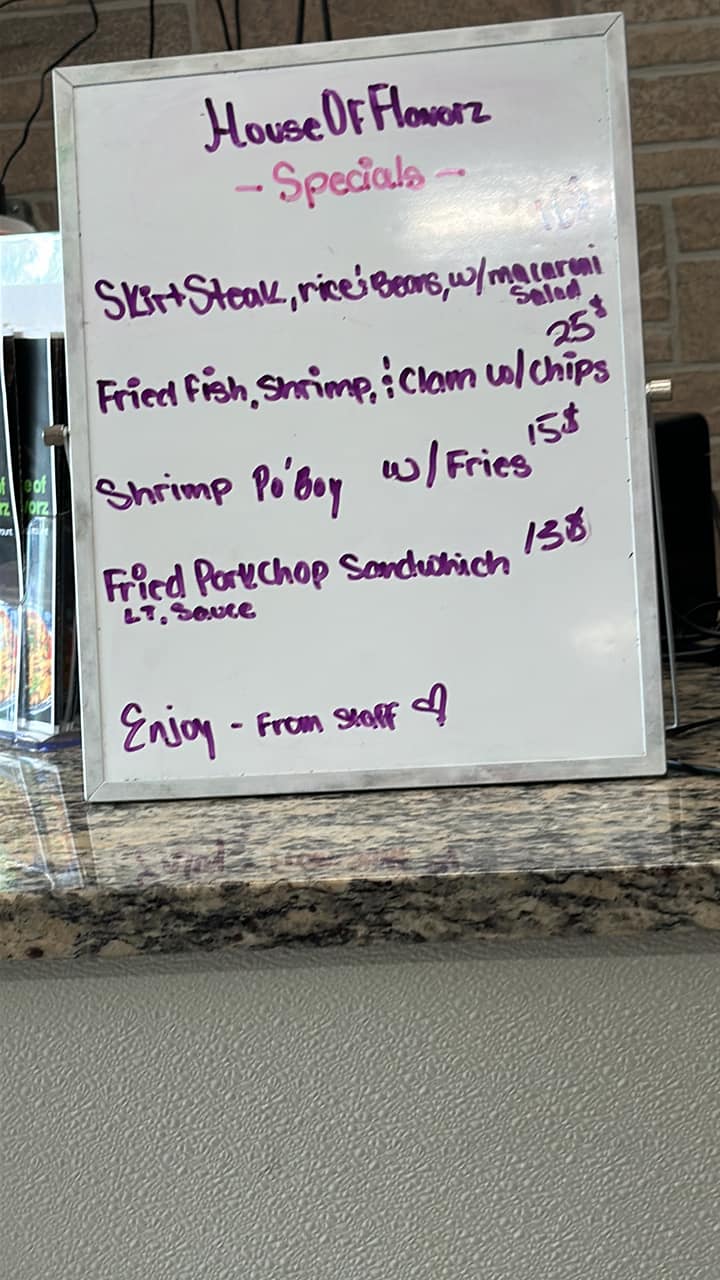 House Of Flavorz
- Specials -
Skirt Steak, rice & Beans, w/ macaroni
Salad
25$
Fried Fish, Shrimp, & Clam w/ chips
15$
Shrimp Po'Boy w/ Fries
13$
Fried Porkchop Sandwhich
LT. Sauce
Enjoy - From Staff ♡
e of
vorz